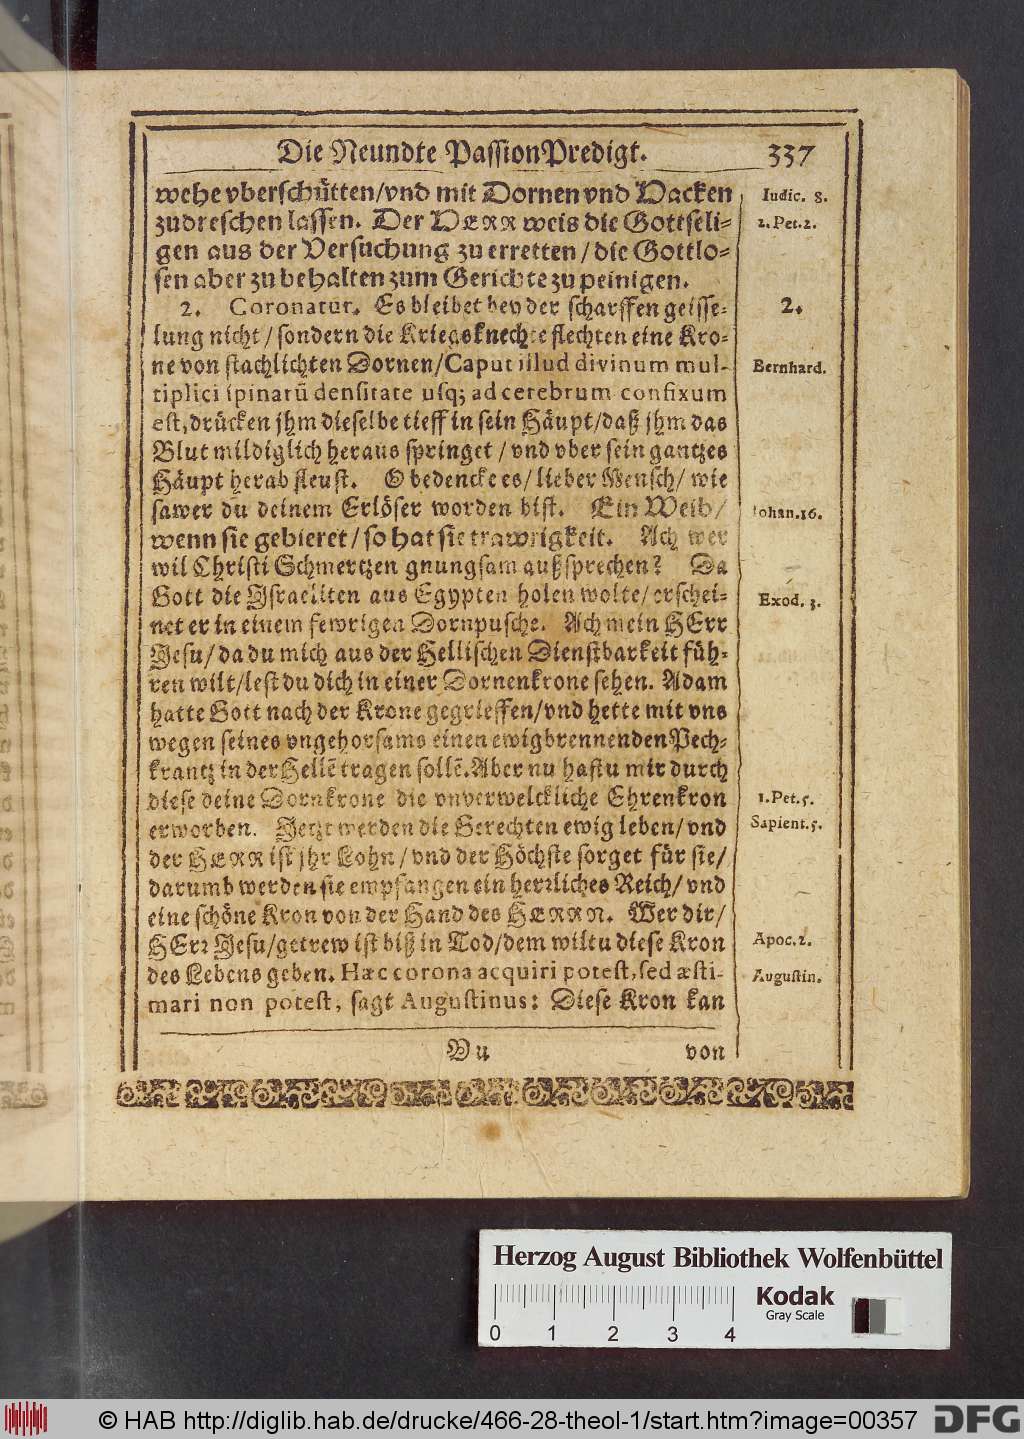 Die Neundte PassionPredigt. 337
wehe vberschütten/vnd mit Dornen vnd Hacken
zudreschen lassen. Der HERR weis die Gottseli-
gen aus der Versuchung zu erretten/die Gottlo-
sen aber zu behalten zum Gerichte zu peinigen.
2. Coronatur. Es bleibet bey der scharffen geisse-
lung nicht/sondern die Kriegsknechte flechten eine Kro-
ne von stachlichten Dornen/Caput illud divinum mul-
tiplici spinarū densitate usq; ad cerebrum confixum
est, drücken jhm dieselbe tieff in sein Häupt/daß jhm das
Blut mildiglich heraus springet/vnd vber sein gantzes
Häupt herab fleust. O bedencke es/lieber Mensch/wie
sawer du deinem Erlöser worden bist. Ein Weib/
wenn sie gebieret/so hat sie trawrigkeit. Ach wer
wil Christi Schmertzen gnungsam außsprechen? Da
Gott die Israeliten aus Egypten holen wolte/erschei-
net er in einem fewrigen Dornpusche. Ach mein HErr
Jesu/da du mich aus der Hellischen Dienstbarkeit füh-
ren wilt/lest du dich in einer Dornenkrone sehen. Adam
hatte Gott nach der Krone gegrieffen/vnd hette mit vns
wegen seines vngehorsams einen ewigbrennenden Pech-
krantz in der Hellē tragen sollē. Aber nu hastu mir durch
diese deine Dornkrone die vnverwelckliche Ehrenkron
erworben. Jetzt werden die Gerechten ewig leben/vnd
der HERR ist jhr Lohn/vnd der Höchste sorget für sie/
darumb werden sie empfangen ein herrliches Reich/vnd
eine schöne Kron von der Hand des HERRN. Wer dir/
HErr Jesu/getrew ist biß in Tod/dem wiltu diese Kron
des Lebens geben. Hæc corona acquiri potest, sed æsti-
mari non potest, sagt Augustinus: Diese Kron kan
Vu von
Iudic. 8.
2. Pet. 2.
2.
Bernhard.
Johan. 16.
Exod. 3.
1. Pet. 5.
Sapient. 5.
Apoc. 2.
Augustin.
Herzog August Bibliothek Wolfenbüttel
Kodak
Gray Scale
0 1 2 3 4
© HAB http://diglib.hab.de/drucke/466-28-theol-1/start.htm?image=00357
DFG